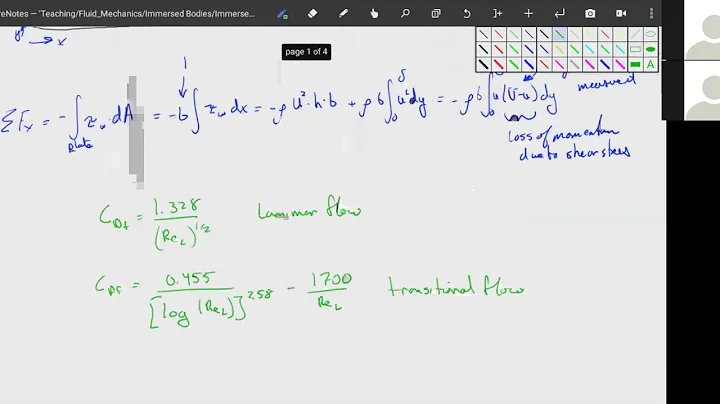 reNotes — 'Teaching/Fluid_Mechanics/Immersed Bodies/Immerse...
page 1 of 4
x
ΣFx = -∫ τw·dA = -b ∫ τw dx = -ρ U²·h·b + ρ b ∫₀^δ u² dy = -ρ b ∫₀ u(U-u) dy
Plate
measured
loss of momentum
due to shear stress
C_Df = 1.328 / (Re_L)^1/2 Laminar flow
C_Df = 0.455 / [log (Re_L)]^2.58 - 1700 / Re_L transitional flow
A